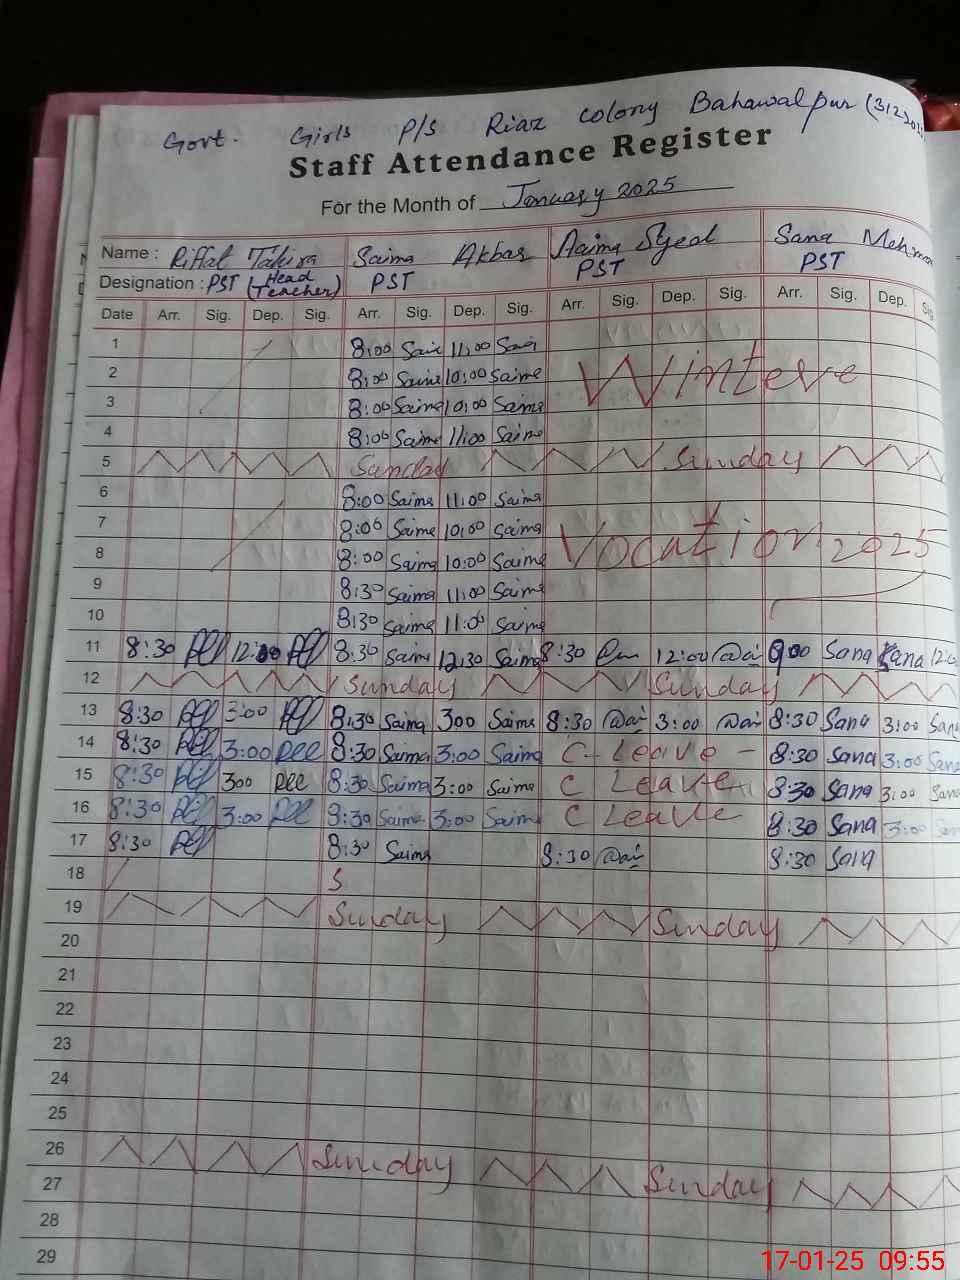 Govt. Girls P/S Riaz colony Bahawalpur
Staff Attendance Register
For the Month of January 2025
Name : Riffat Tahira Saima Akbar Aaima Syeal Sana Mehma
Designation : PST (Head Teacher) PST PST PST
Date Arr. Sig. Dep. Sig. Arr. Sig. Dep. Sig. Arr. Sig. Dep. Sig. Arr. Sig. Dep. Sig
1 8:00 Saim 11:00 Saim
2 8:00 Saime 10:00 Saime Winteve
3 8:00 Saima 10:00 Saima
4 8:00 Saima 11:00 Saime
5 Sanday Sunday
6 8:00 Saima 11:00 Saima
7 8:00 Saima 10:00 Saima
8 8:00 Saima 10:00 Saima Vocation 2025
9 8:30 Saima 11:00 Saima
10 8:30 Saima 11:00 Saima
11 8:30 12:00 8:30 Saima 12:30 Saima 8:30 12:00 9:00 Sana Sana 12:0
12 Sunday Sunday
13 8:30 3:00 8:30 Saima 300 Saima 8:30 3:00 8:30 Sana 3:00 Sana
14 8:30 3:00 8:30 Saima 3:00 Saima C-Leave - 8:30 Sana 3:00 Sana
15 8:30 300 8:30 Saima 3:00 Saima C Leave 8:30 Sana 3:00 Sana
16 8:30 3:00 8:30 Saima 3:00 Saima C Leave 8:30 Sana 3:00 Sana
17 8:30 8:30 Saima 8:30 8:30 Sana
18 S
19 Sunday Sunday
20
21
22
23
24
25
26 Sunday
27 Sunday
28
29
17-01-25 09:55